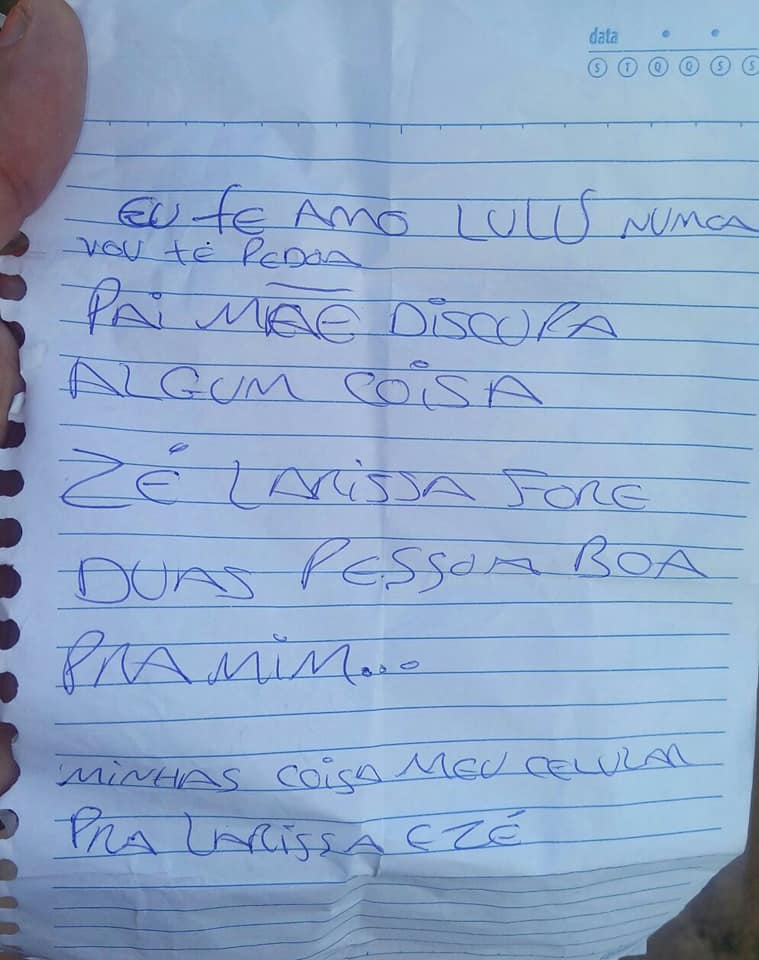 data
S T Q Q S S
EU TE AMO LULU NUMCA
VOU TE PEDOA
PAI MÃE DISCUPA
ALGUM COISA
ZÉ LARISSA FORE
DUAS PESSOA BOA
PRA MIM...
MINHAS COISA MEU CELULAR
PRA LARISSA E ZÉ